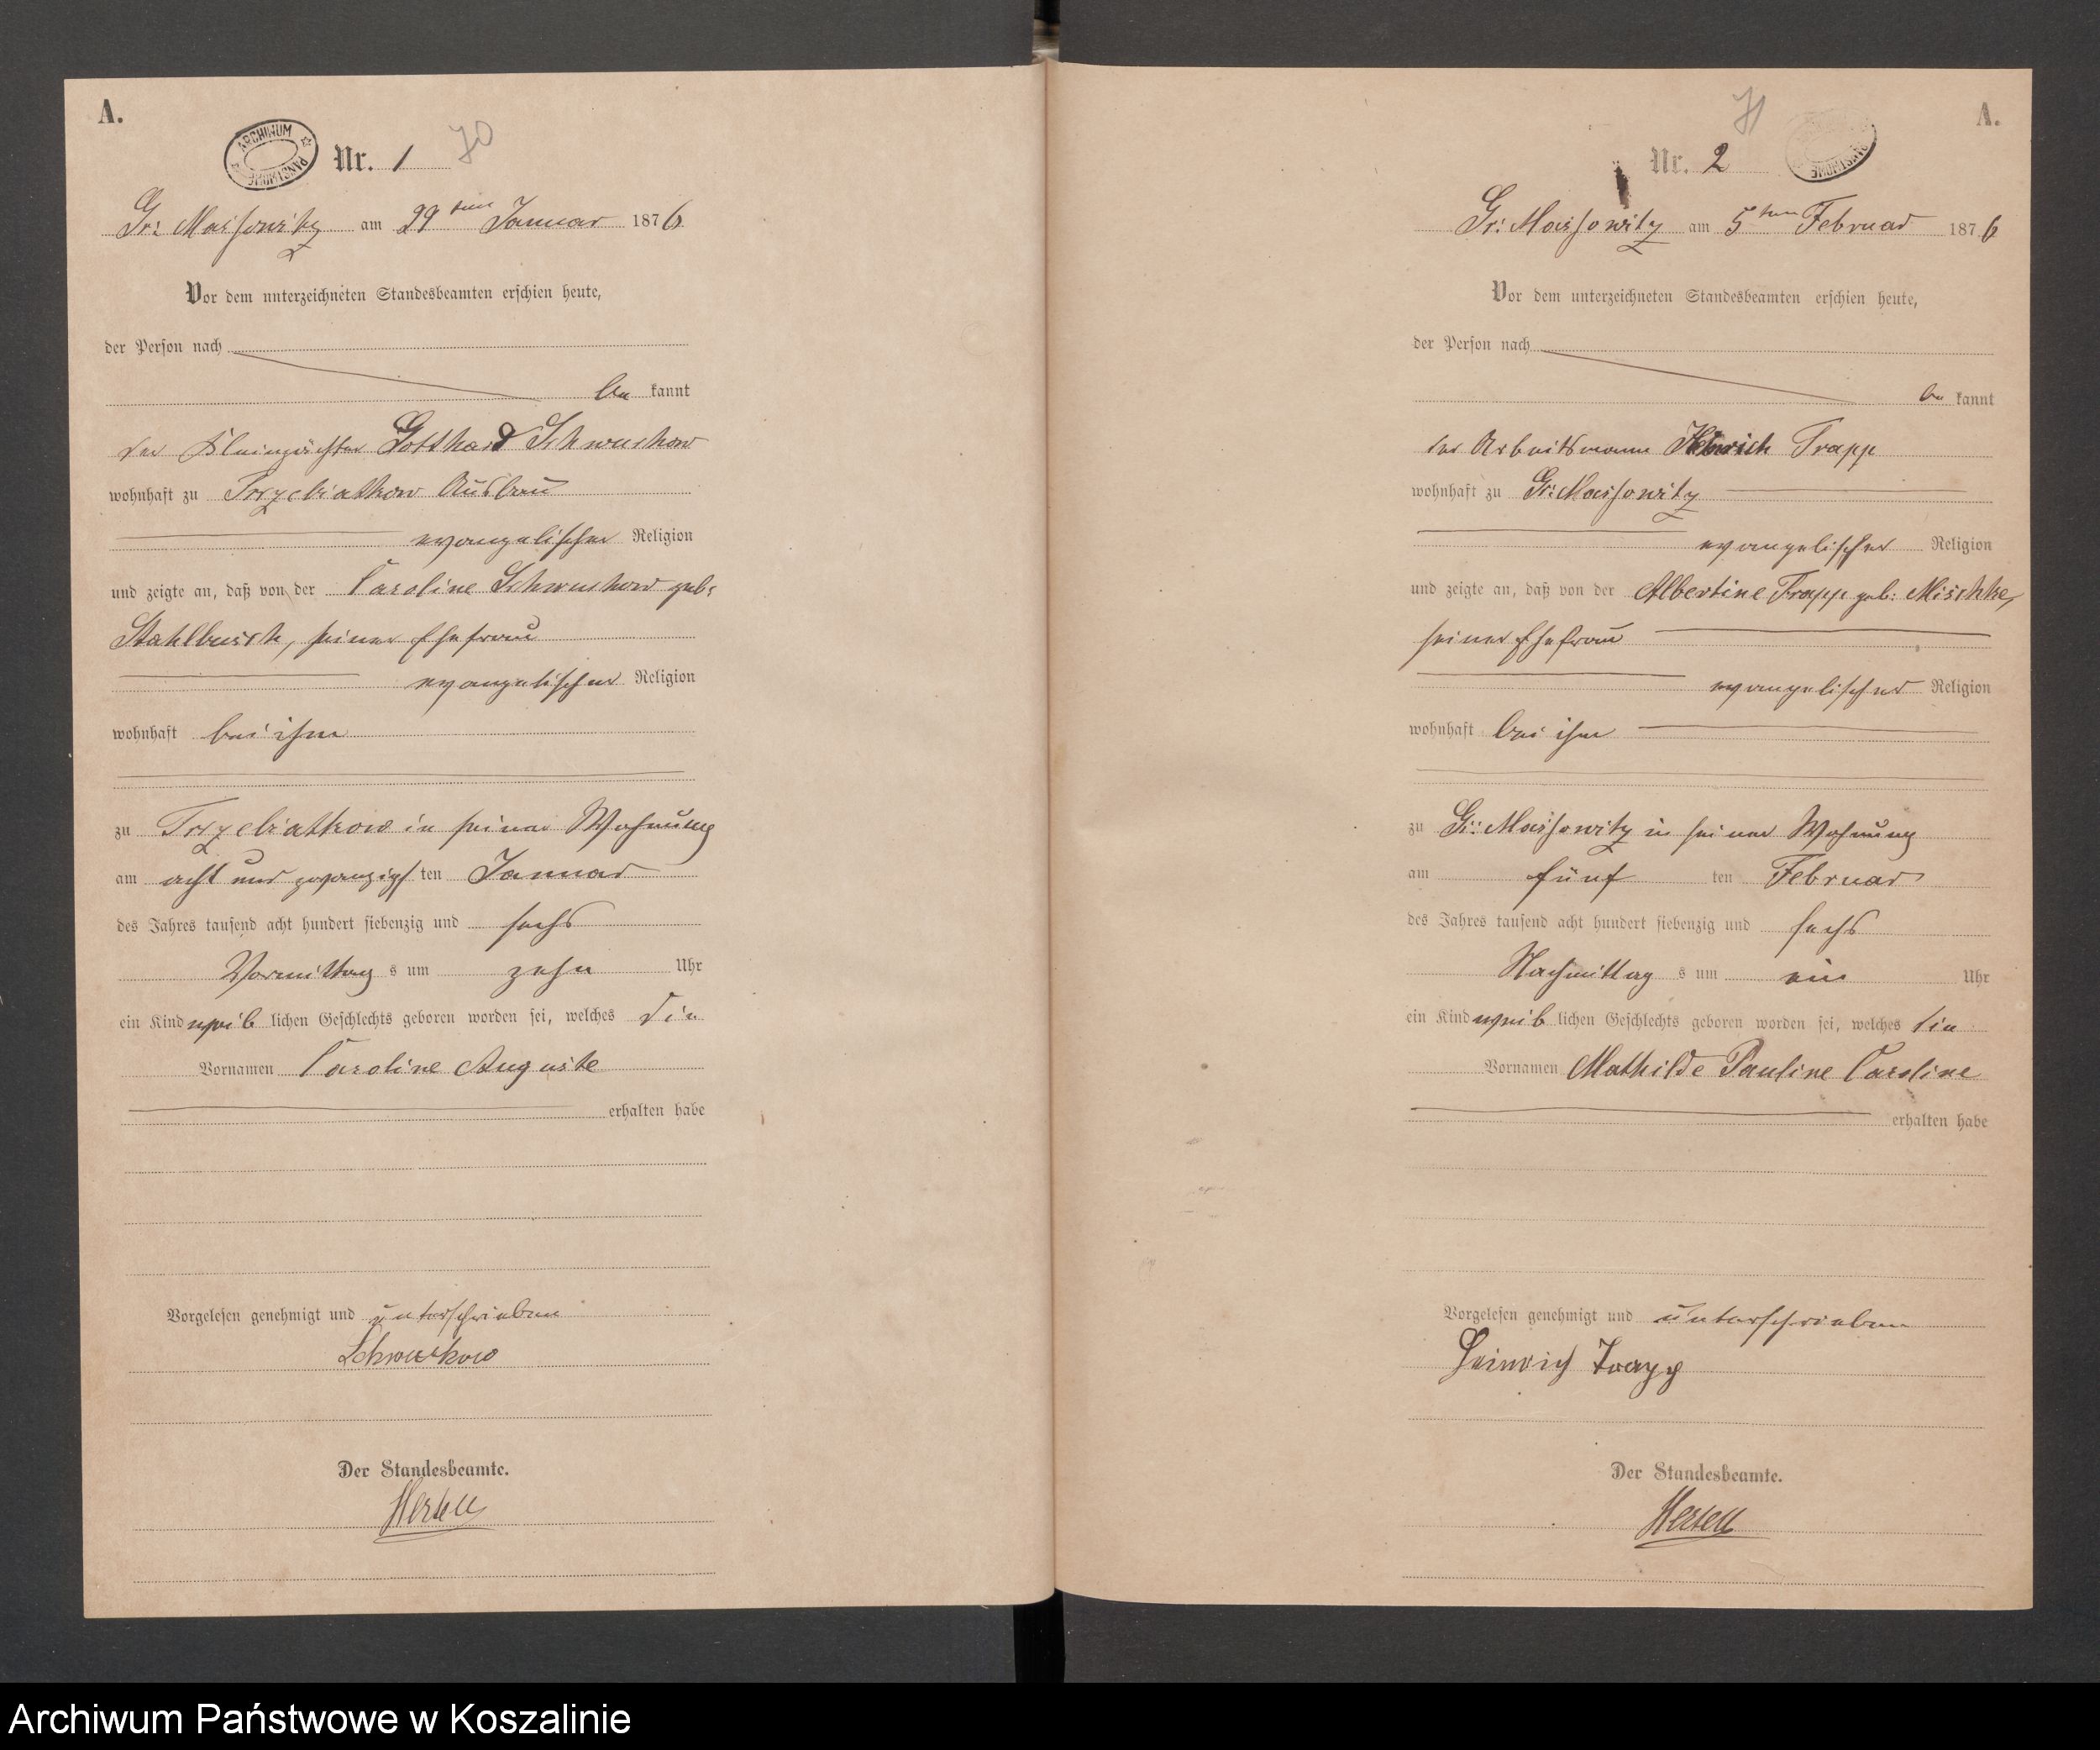 A.
ARCHIWUM PAŃSTWOWE
Nr. 1
70
Gr: Massowitz am 29ten Januar 1876
Vor dem unterzeichneten Standesbeamten erschien heute,
der Person nach
be kannt
der Kleinpächter Gotthard Schwuchow
wohnhaft zu Trzebiatkow Ausbau
evangelischer Religion
und zeigte an, daß von der Caroline Schwuchow geb:
Stahlbusch, seiner Ehefrau
evangelischer Religion
wohnhaft bei ihm
zu Trzebiatkow in seiner Wohnung
am acht und zwanzigsten Januar
des Jahres tausend acht hundert siebenzig und sechs
Vormittags um zehn Uhr
ein Kind weiblichen Geschlechts geboren worden sei, welches die
Vornamen Caroline Auguste
erhalten habe
Vorgelesen genehmigt und unterschrieben
Schwuchow
Der Standesbeamte.
Hertell
A.
71
Nr. 2
PAŃSTWOWE
Gr: Massowitz am 5ten Februar 1876
Vor dem unterzeichneten Standesbeamten erschien heute,
der Person nach
be kannt
der Arbeitsmann Heinrich Trapp
wohnhaft zu Gr: Massowitz
evangelischer Religion
und zeigte an, daß von der Albertine Trapp geb: Mischke,
seiner Ehefrau
evangelischer Religion
wohnhaft bei ihm
zu Gr: Massowitz in seiner Wohnung
am fünften Februar
des Jahres tausend acht hundert siebenzig und sechs
Nachmittags um ein Uhr
ein Kind weiblichen Geschlechts geboren worden sei, welches die
Vornamen Mathilde Pauline Caroline
erhalten habe
Vorgelesen genehmigt und unterschrieben
Heinrich Trapp
Der Standesbeamte.
Hertell
Archiwum Państwowe w Koszalinie